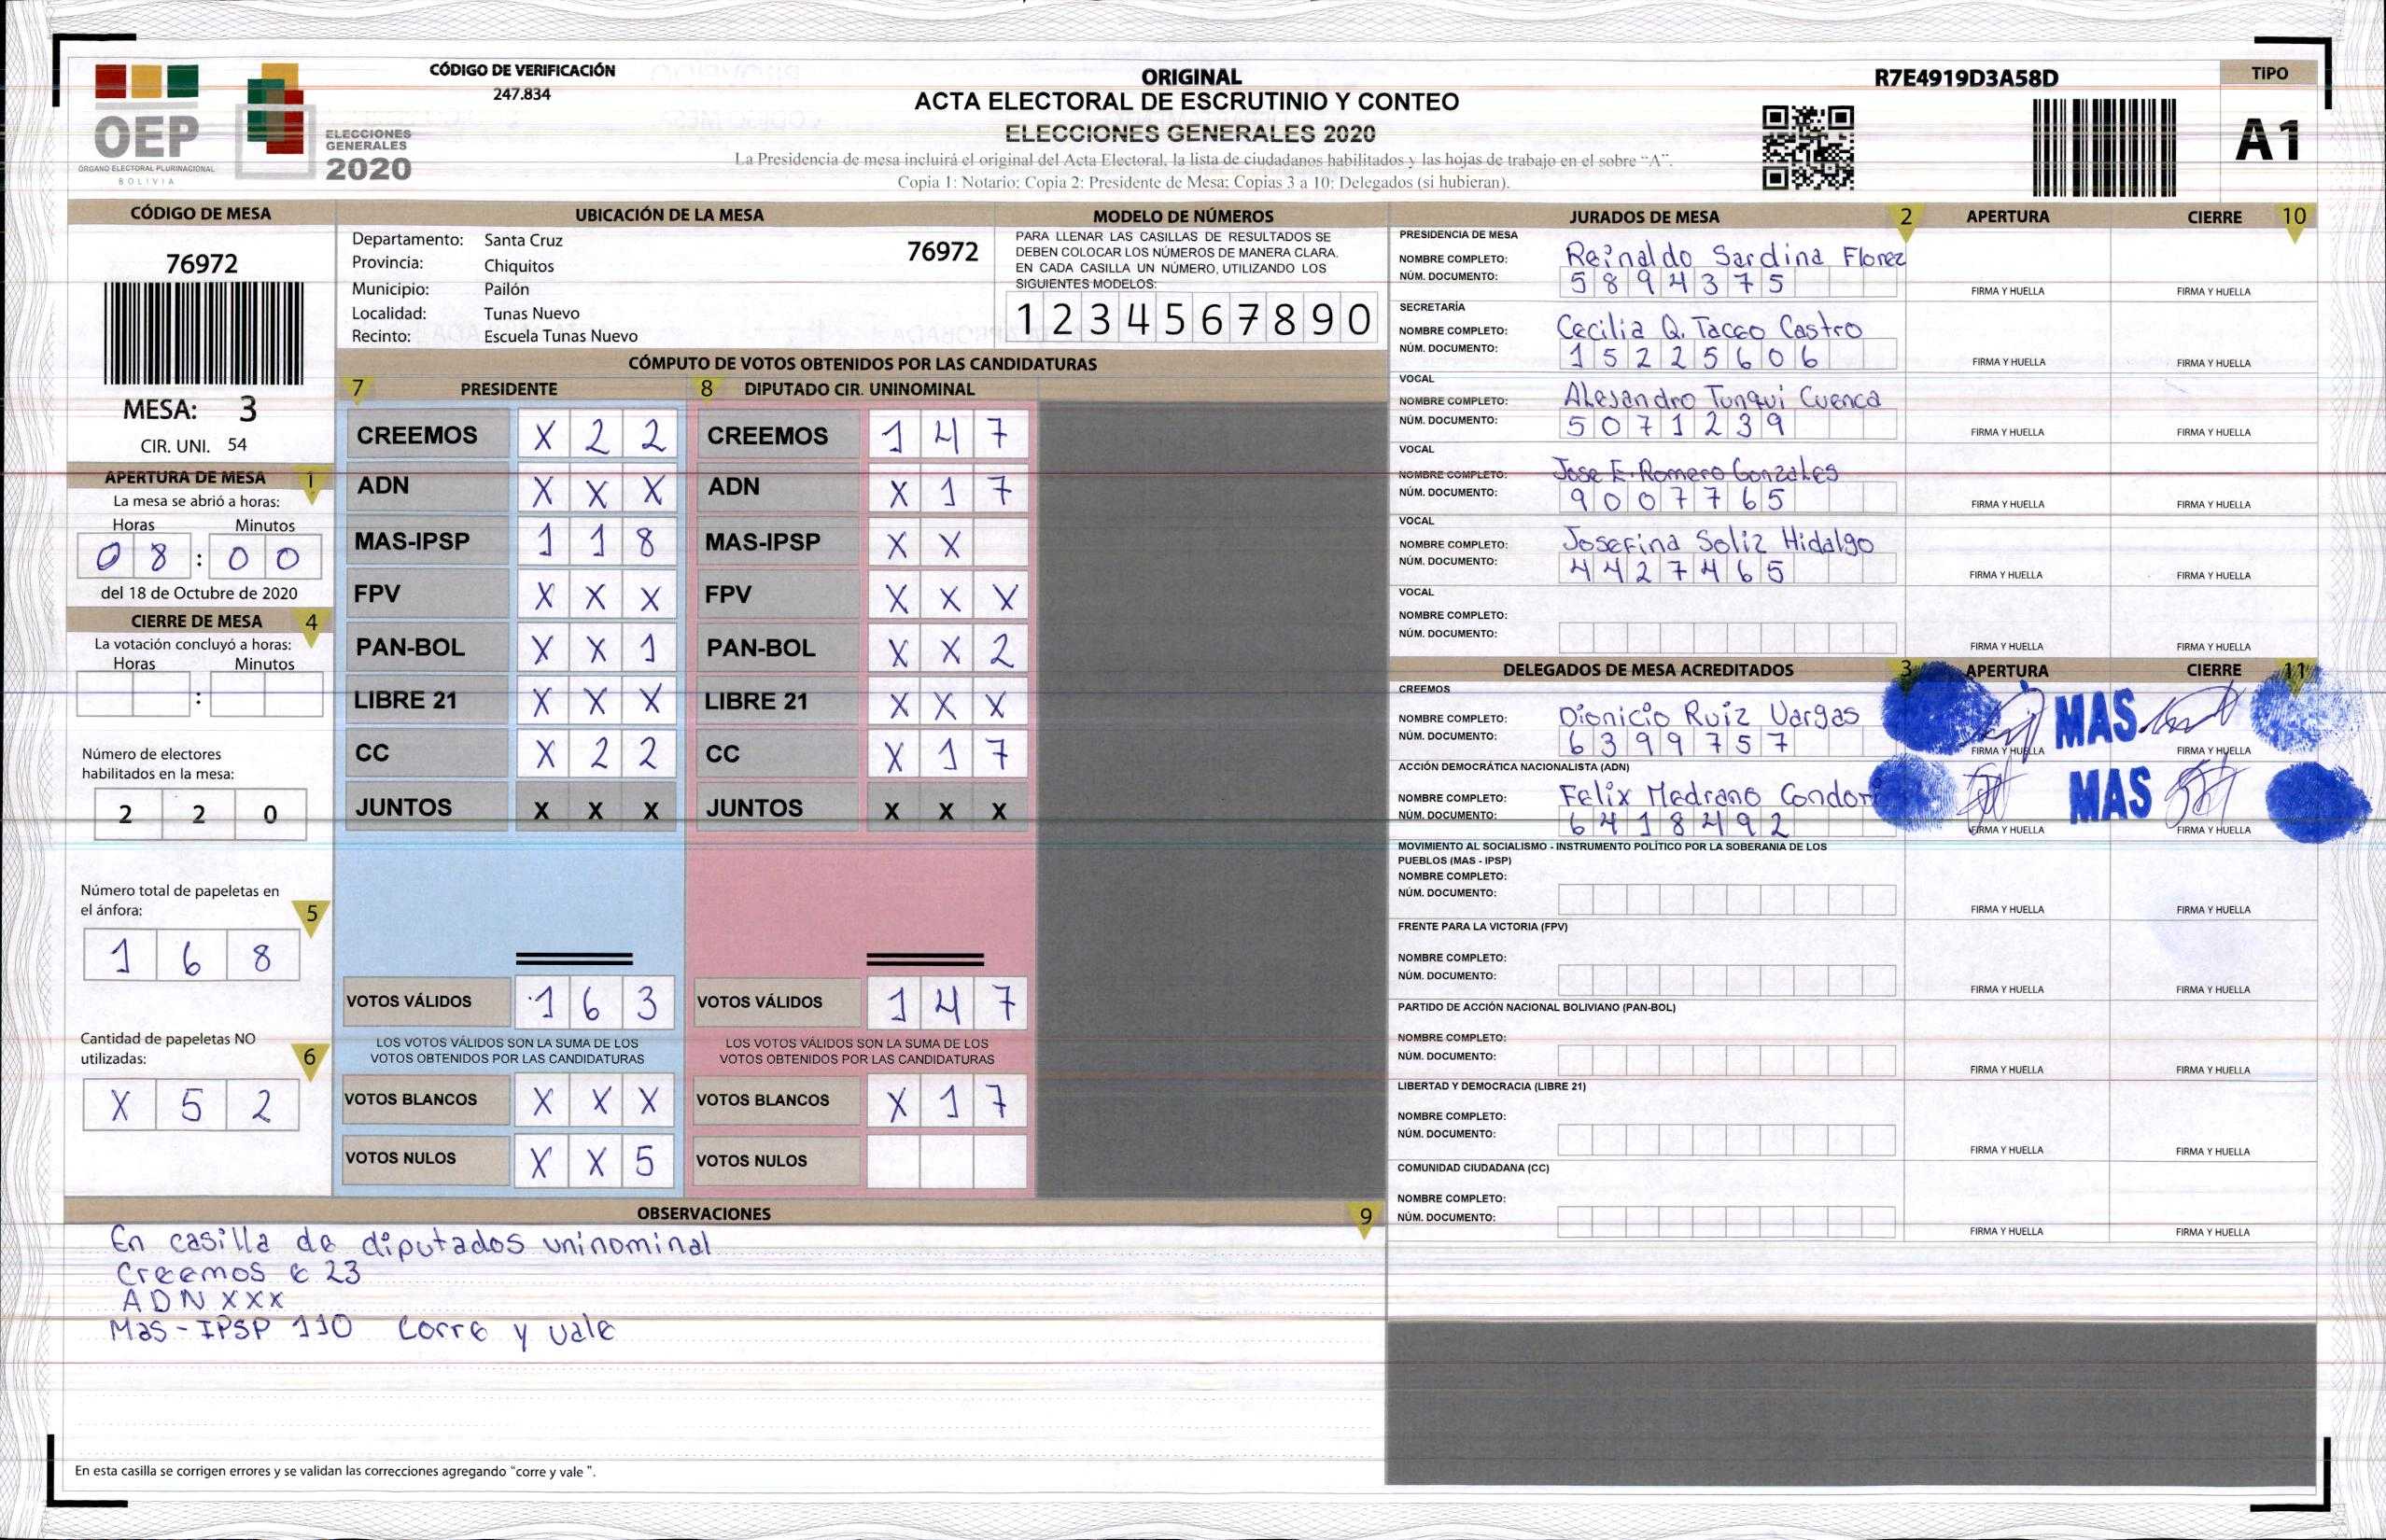 CÓDIGO DE VERIFICACIÓN
247.834
OEP
ÓRGANO ELECTORAL PLURINACIONAL
BOLIVIA
ELECCIONES
GENERALES
2020
ORIGINAL
ACTA ELECTORAL DE ESCRUTINIO Y CONTEO
ELECCIONES GENERALES 2020
La Presidencia de mesa incluirá el original del Acta Electoral, la lista de ciudadanos habilitados y las hojas de trabajo en el sobre "A".
Copia 1: Notario; Copia 2: Presidente de Mesa; Copias 3 a 10: Delegados (si hubieran).
R7E4919D3A58D
TIPO
A1
CÓDIGO DE MESA
76972
MESA: 3
CIR. UNI. 54
APERTURA DE MESA 1
La mesa se abrió a horas:
Horas Minutos
08:00
del 18 de Octubre de 2020
CIERRE DE MESA 4
La votación concluyó a horas:
Horas Minutos
:
Número de electores
habilitados en la mesa:
2 2 0
Número total de papeletas en
el ánfora: 5
1 6 8
Cantidad de papeletas NO
utilizadas: 6
X 5 2
UBICACIÓN DE LA MESA
Departamento: Santa Cruz 76972
Provincia: Chiquitos
Municipio: Pailón
Localidad: Tunas Nuevo
Recinto: Escuela Tunas Nuevo
MODELO DE NÚMEROS
PARA LLENAR LAS CASILLAS DE RESULTADOS SE
DEBEN COLOCAR LOS NÚMEROS DE MANERA CLARA.
EN CADA CASILLA UN NÚMERO, UTILIZANDO LOS
SIGUIENTES MODELOS:
1 2 3 4 5 6 7 8 9 0
CÓMPUTO DE VOTOS OBTENIDOS POR LAS CANDIDATURAS
7 PRESIDENTE 8 DIPUTADO CIR. UNINOMINAL
CREEMOS X 2 2 CREEMOS 1 4 7
ADN X X X ADN X 1 7
MAS-IPSP 1 1 8 MAS-IPSP X X
FPV X X X FPV X X X
PAN-BOL X X 1 PAN-BOL X X 2
LIBRE 21 X X X LIBRE 21 X X X
CC X 2 2 CC X 1 7
JUNTOS X X X JUNTOS X X X
VOTOS VÁLIDOS 1 6 3 VOTOS VÁLIDOS 1 4 7
LOS VOTOS VÁLIDOS SON LA SUMA DE LOS LOS VOTOS VÁLIDOS SON LA SUMA DE LOS
VOTOS OBTENIDOS POR LAS CANDIDATURAS VOTOS OBTENIDOS POR LAS CANDIDATURAS
VOTOS BLANCOS X X X VOTOS BLANCOS X 1 7
VOTOS NULOS X X 5 VOTOS NULOS
OBSERVACIONES 9
En casilla de diputados uninominal
Creemos e 23
ADN XXX
Mas-IPSP 110 Corre y vale
En esta casilla se corrigen errores y se validan las correcciones agregando "corre y vale ".
JURADOS DE MESA 2 APERTURA CIERRE 10
PRESIDENCIA DE MESA
NOMBRE COMPLETO: Reinaldo Sardina Florez
NÚM. DOCUMENTO: 5894375
FIRMA Y HUELLA FIRMA Y HUELLA
SECRETARÍA
NOMBRE COMPLETO: Cecilia Q. Tacco Castro
NÚM. DOCUMENTO: 15225606
FIRMA Y HUELLA FIRMA Y HUELLA
VOCAL
NOMBRE COMPLETO: Alejandro Tunqui Cuenca
NÚM. DOCUMENTO: 5071239
FIRMA Y HUELLA FIRMA Y HUELLA
VOCAL
NOMBRE COMPLETO: Jose E. Romero Gonzales
NÚM. DOCUMENTO: 9007765
FIRMA Y HUELLA FIRMA Y HUELLA
VOCAL
NOMBRE COMPLETO: Josefina Soliz Hidalgo
NÚM. DOCUMENTO: 4427465
FIRMA Y HUELLA FIRMA Y HUELLA
VOCAL
NOMBRE COMPLETO:
NÚM. DOCUMENTO:
FIRMA Y HUELLA FIRMA Y HUELLA
DELEGADOS DE MESA ACREDITADOS 3 APERTURA CIERRE 11
CREEMOS
NOMBRE COMPLETO: Dionicio Ruiz Vargas MAS
NÚM. DOCUMENTO: 6399757
FIRMA Y HUELLA FIRMA Y HUELLA
ACCIÓN DEMOCRÁTICA NACIONALISTA (ADN)
NOMBRE COMPLETO: Felix Medrano Condori MAS
NÚM. DOCUMENTO: 6418492
FIRMA Y HUELLA FIRMA Y HUELLA
MOVIMIENTO AL SOCIALISMO - INSTRUMENTO POLÍTICO POR LA SOBERANIA DE LOS
PUEBLOS (MAS - IPSP)
NOMBRE COMPLETO:
NÚM. DOCUMENTO:
FIRMA Y HUELLA FIRMA Y HUELLA
FRENTE PARA LA VICTORIA (FPV)
NOMBRE COMPLETO:
NÚM. DOCUMENTO:
FIRMA Y HUELLA FIRMA Y HUELLA
PARTIDO DE ACCIÓN NACIONAL BOLIVIANO (PAN-BOL)
NOMBRE COMPLETO:
NÚM. DOCUMENTO:
FIRMA Y HUELLA FIRMA Y HUELLA
LIBERTAD Y DEMOCRACIA (LIBRE 21)
NOMBRE COMPLETO:
NÚM. DOCUMENTO:
FIRMA Y HUELLA FIRMA Y HUELLA
COMUNIDAD CIUDADANA (CC)
NOMBRE COMPLETO:
NÚM. DOCUMENTO:
FIRMA Y HUELLA FIRMA Y HUELLA